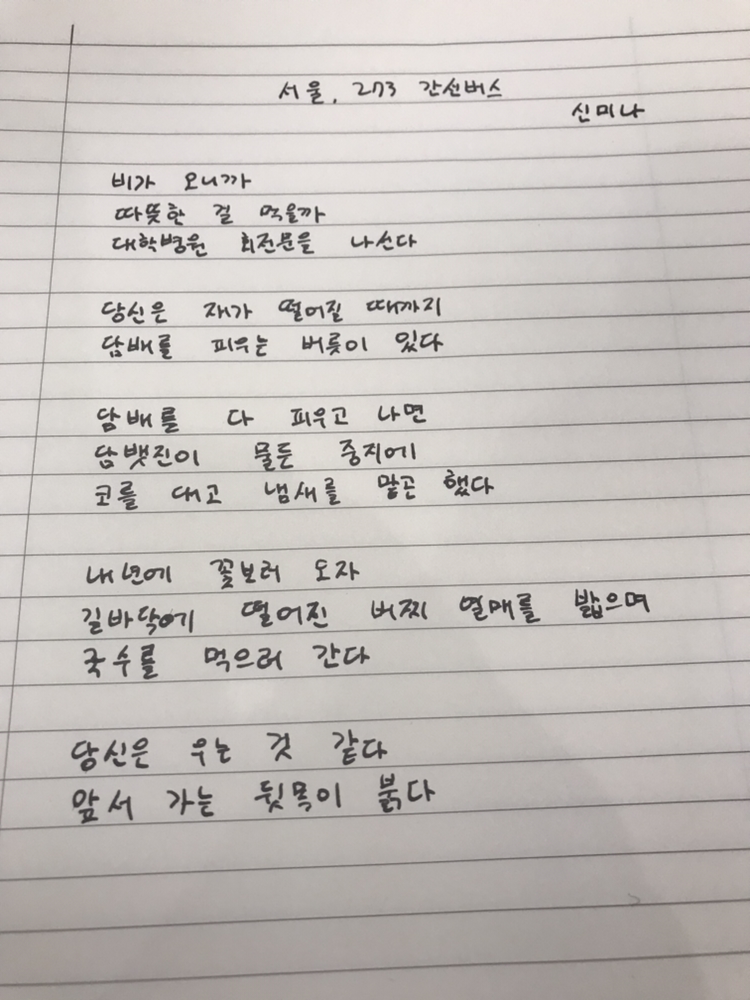 서울, 273 간선버스
신미나
비가 오니까
따뜻한 걸 먹을까
대학병원 회전문을 나선다
당신은 재가 떨어질 때까지
담배를 피우는 버릇이 있다
담배를 다 피우고 나면
담뱃진이 물든 중지에
코를 대고 냄새를 맡곤 했다
내년에 꽃보러 오자
길바닥에 떨어진 버찌 열매를 밟으며
국수를 먹으러 간다
당신은 우는 것 같다
앞서 가는 뒷목이 붉다